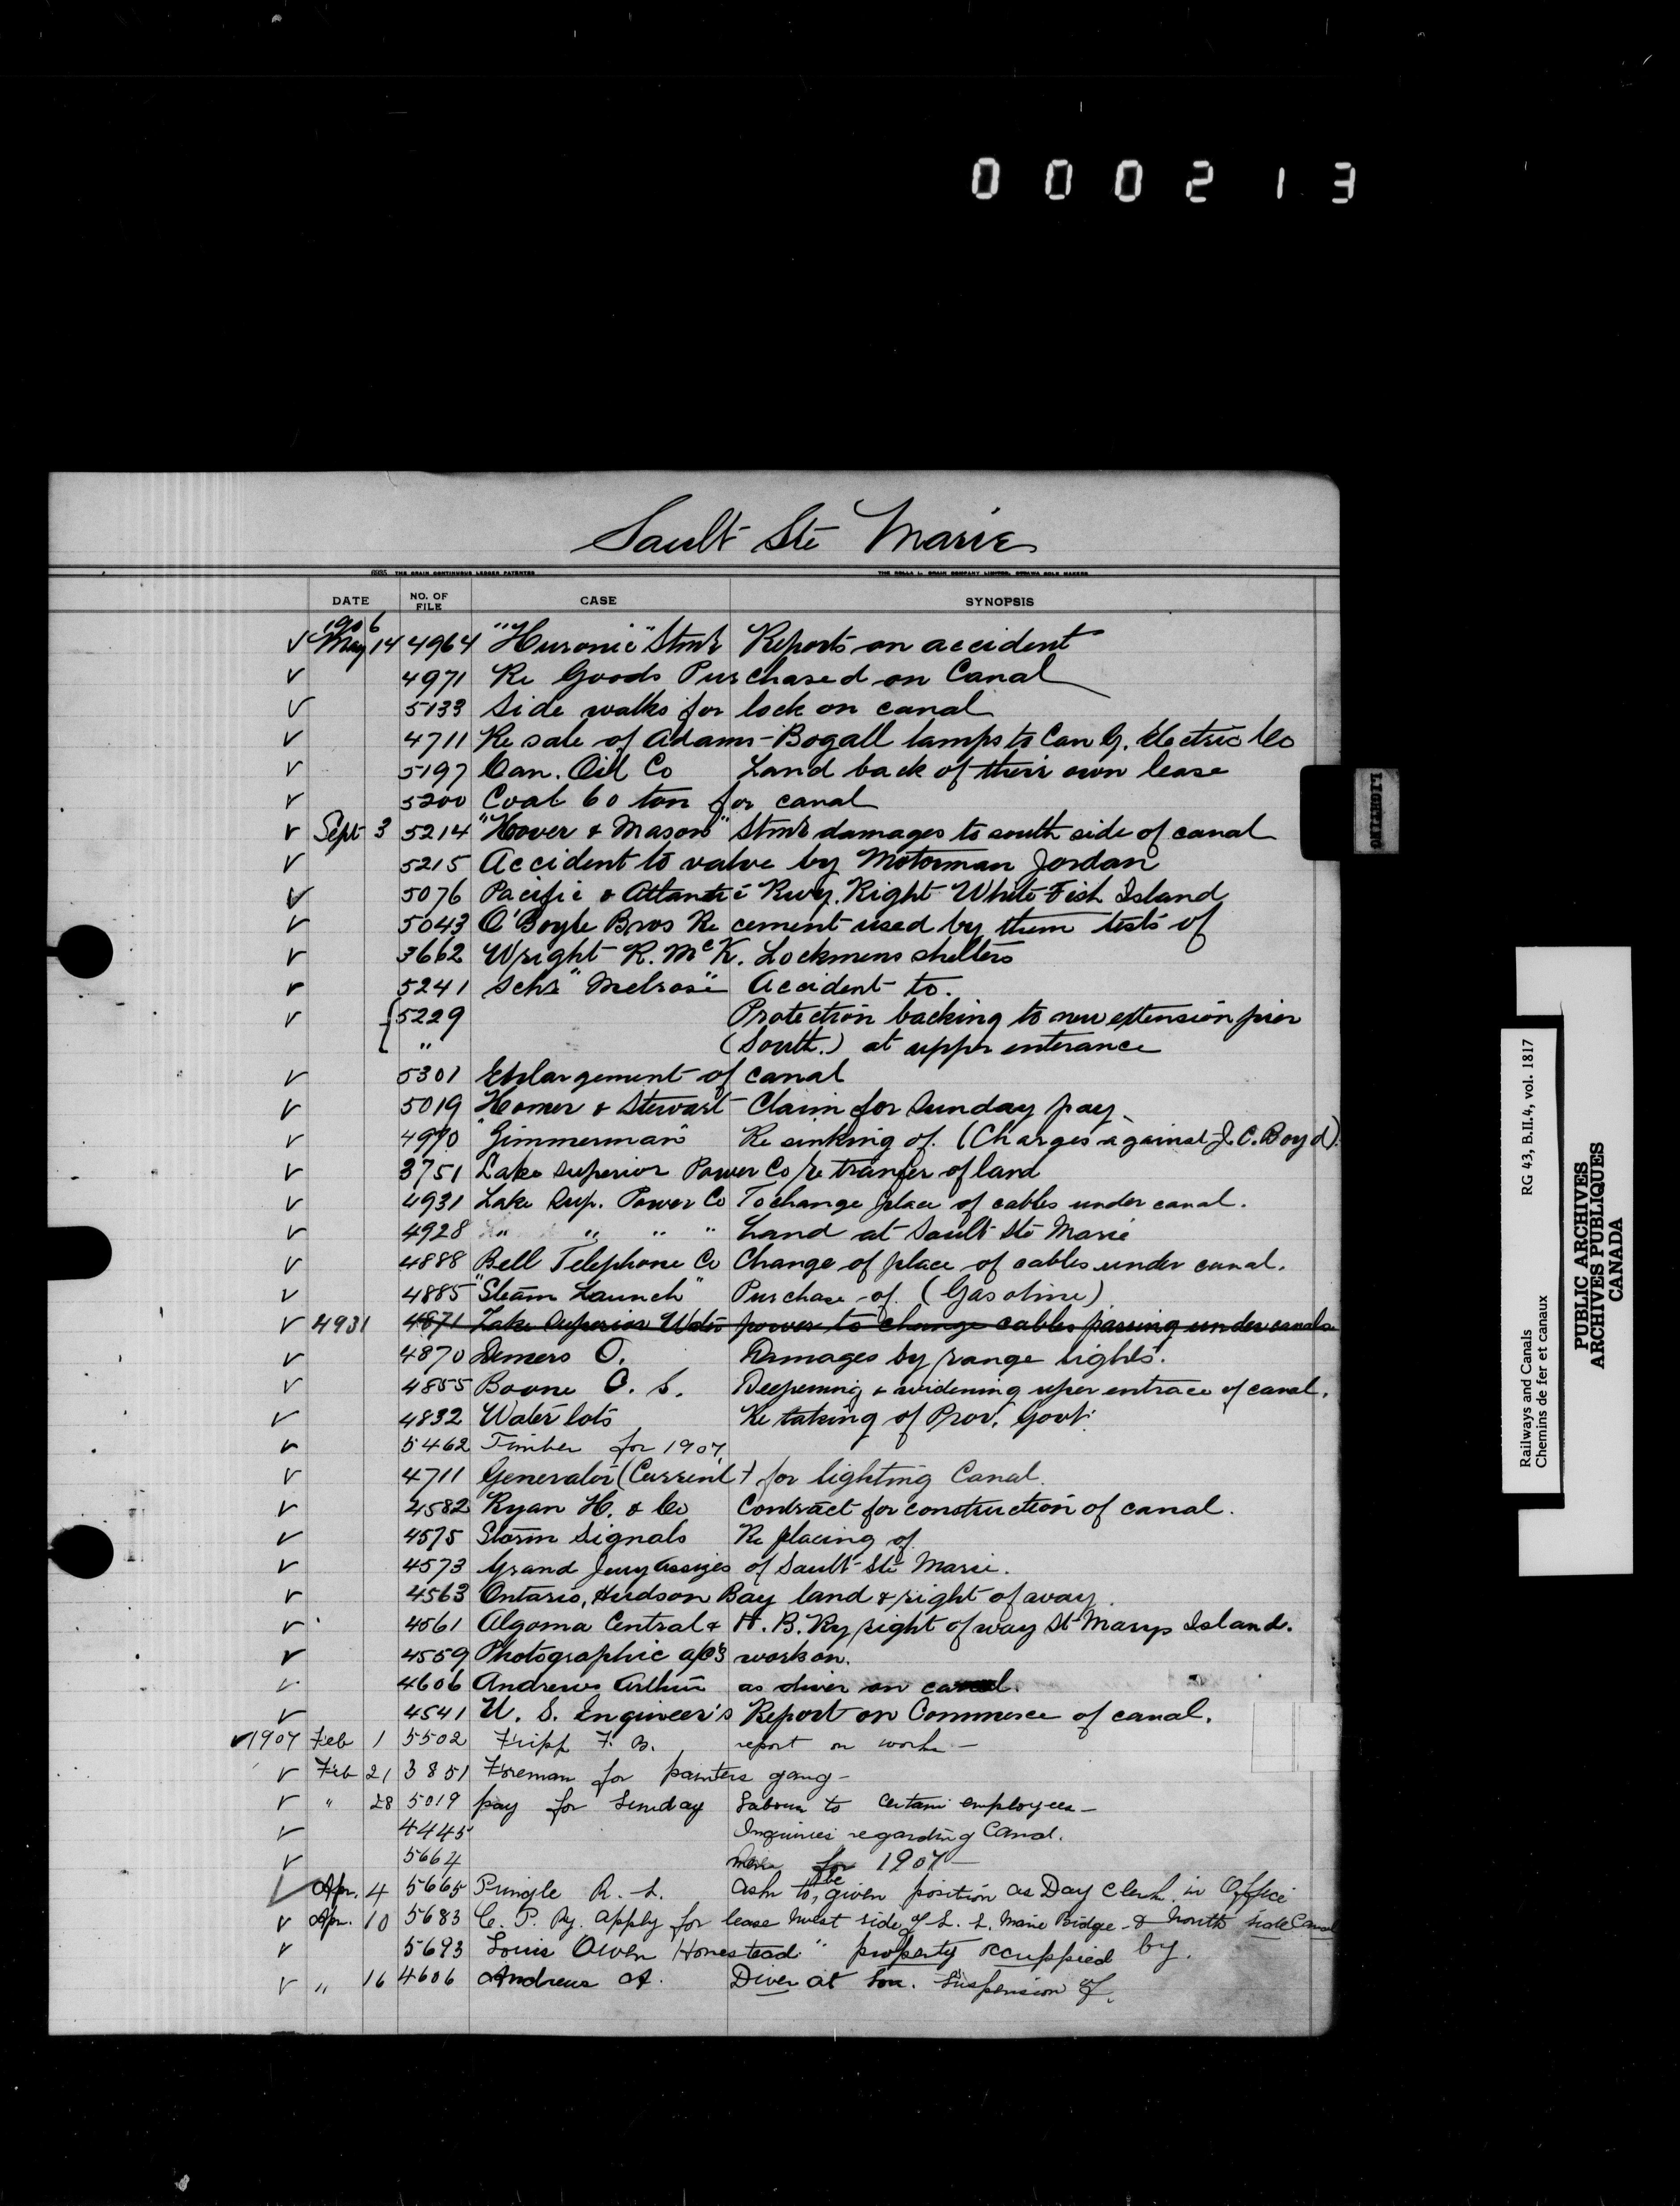 000213
Sault Ste Marie
6935 THE CRAIN CONTINUOUS LEDGER PATENTED THE ROLLA L. CRAIN COMPANY LIMITED, OTTAWA SOLE MAKERS
DATE NO. OF FILE CASE SYNOPSIS
1906
✓ May 14 4964 "Huronic" Stmr Reports on accident
✓ 4971 Re Goods Purchased on Canal
✓ 5133 Side walks for lock on canal
✓ 4711 Re sale of Adams-Bogall lamps to Can G. Electric Co
✓ 5197 Can. Oil Co Land back of their own lease
✓ 5200 Coal 60 ton for canal
✓ Sept 3 5214 "Hover & Mason" Stmr damages to south side of canal
✓ 5215 Accident to valve by Motorman Jordan
✓ 5076 Pacific & Atlantic Rwy. Right White Fish Island
✓ 5043 O'Boyle Bros Re cement used by them tests of
✓ 3662 Wright R. McK. Lockmens shelters
✓ 5241 Schr "Melrose" Accident to.
✓ 5229 Protection backing to new extension pier
" (South.) at upper enterance
✓ 5301 Enlargement of canal
✓ 5019 Homer & Stewart Claim for Sunday pay.
✓ 4970 "Zimmerman" Re sinking of. (Charges against J. C. Boyd).
✓ 3751 Lake Superior Power Co re tranfer of land
✓ 4931 Lake Sup. Power Co To change place of cables under canal.
✓ 4928 " " " " Land at Sault Ste Marie
✓ 4888 Bell Telephone Co Change of place of cables under canal.
✓ 4885 "Steam Launch" Purchase of. (Gasoline)
✓ 4931 4871 Lake Superior Water power to change cables passing under canals
✓ 4870 Demers O. Damages by range lights.
✓ 4855 Boone C. S. Deepening & widening uper entrace of canal.
✓ 4832 Water lots Re taking of Prov. Govt.
✓ 5462 Timber for 1907
✓ 4711 Generator (Current) for lighting Canal.
✓ 4582 Ryan H. & Co Contract for construction of canal.
✓ 4575 Storm Signals Re placing of
✓ 4573 Grand Jury Assizes of Sault Ste Marie.
✓ 4563 Ontario, Hudson Bay land & right of away.
✓ 4561 Algoma Central & H. B. Ry right of way St Marys Island.
✓ 4559 Photographic a/c's work on.
✓ 4606 Andrews Arthur as diver on canal.
✓ 4541 U. S. Engineer's Report on Commerce of canal.
✓ 1907 Feb 1 5502 Fripp F. B. report on work —
✓ Feb 21 3851 Foreman for painters gang —
✓ " 28 5019 pay for Sunday Labour to certain employees —
✓ 4445 Inquiries regarding Canal.
✓ 5664 for 1907 —
be
✓ Apr. 4 5665 Pringle R. L. Ask to, given position as Day Clerk in Office
✓ Apr. 10 5683 C. P. Ry. apply for lease west side of S. S. Marie Bridge & North side Canal
✓ 5693 Louis Owen Homestead " property occuppied by.
✓ " 16 4606 Andrews A. Diver at Soo. Suspension of.
ONTARIO
Railways and Canals RG 43, B.II.4, vol. 1817
Chemins de fer et canaux
PUBLIC ARCHIVES
ARCHIVES PUBLIQUES
CANADA